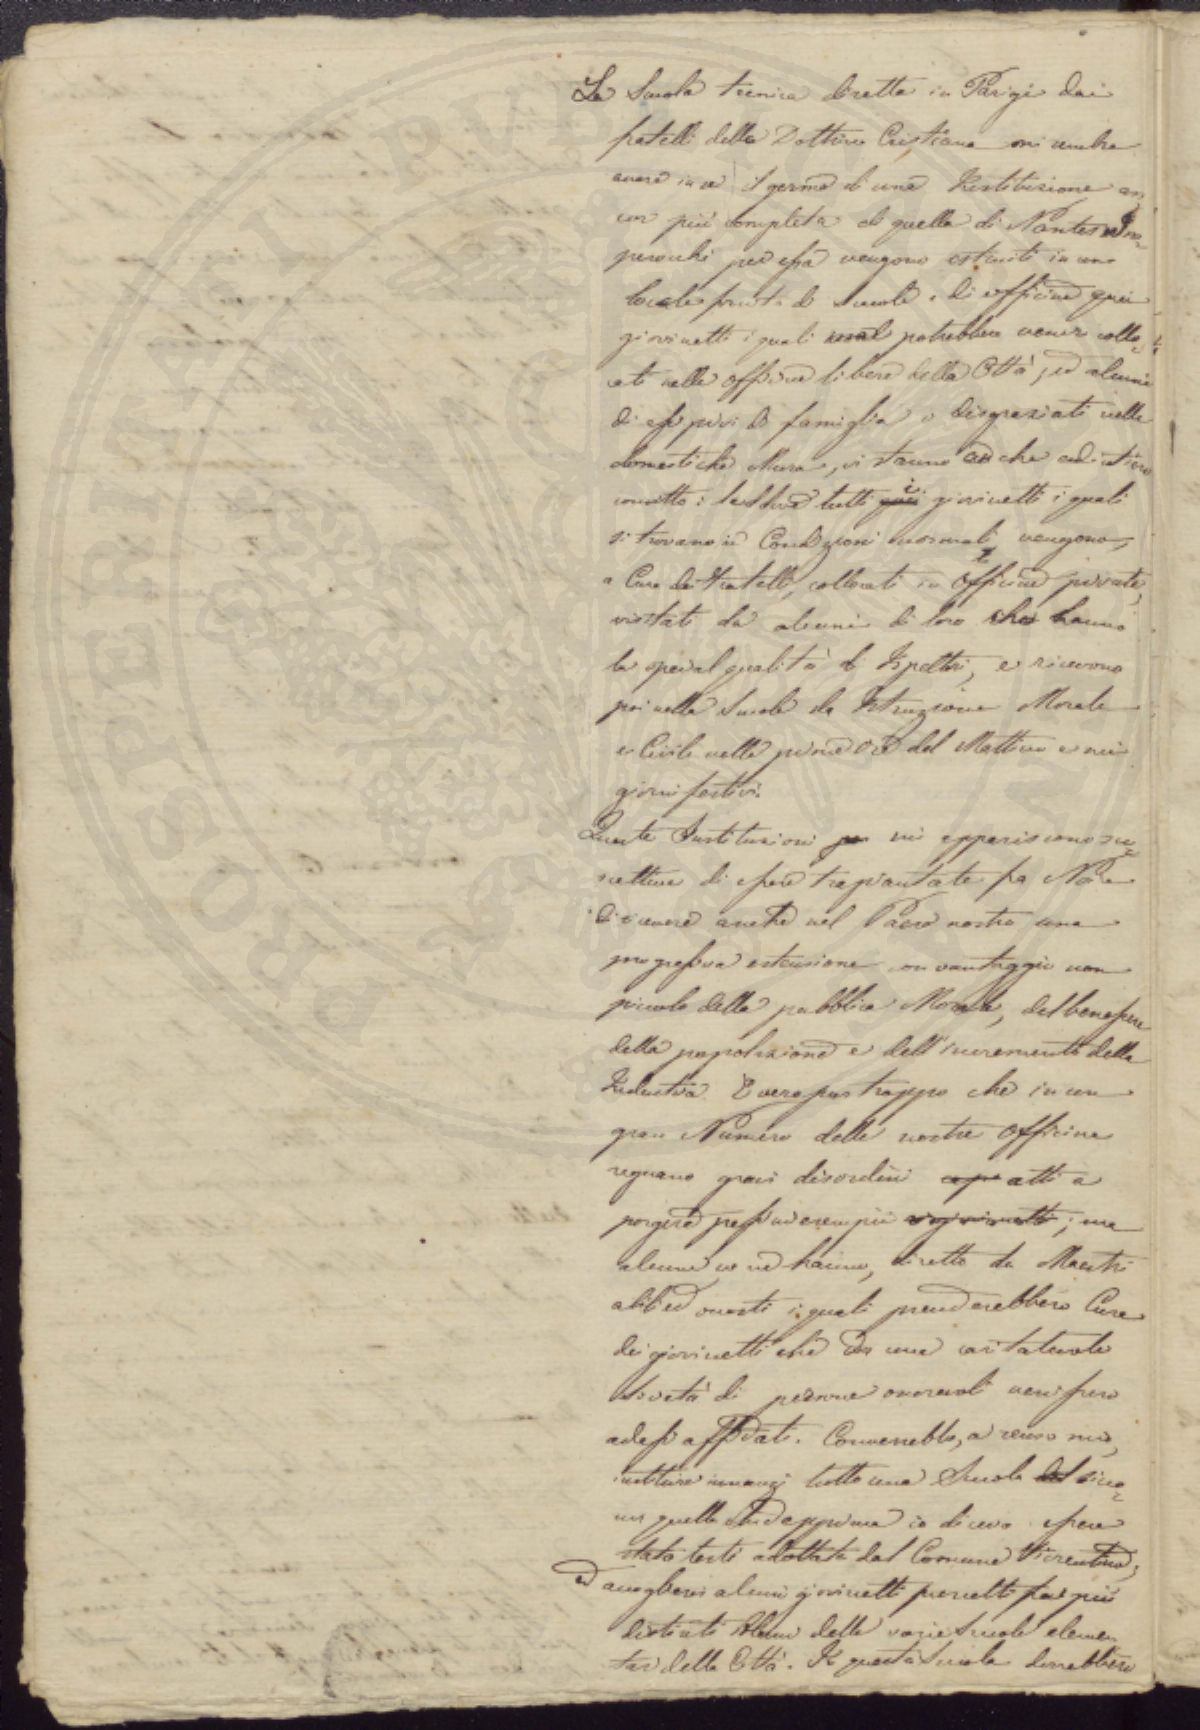 La Scuola tecnica diretta in Parigi dai
fratelli della Dottrina Cristiana mi sembra
avere in se il germe di una Istituzione an,
cor più completa di quella di Nantes Im=
perocchè per essa vengono istruiti in un
locale fornito di scuole e di officine quei
giovinetti i quali mal potrebbero venir collo=
cati nelle officine libere della Città, ed alcuni
di essi privi di famiglia o disgraziati nelle
domestiche Mura, vi stanno anche ad intiero
convitto: laddove tutti quei i giovinetti i quali
si trovano in Condizioni normali, vengono,
a Cura dei fratelli, collocati in Officine private,
visitati da alcuni di loro che hanno
la special qualità di Ispettori, e ricevono
poi nella Scuola la Istruzione Morale
e Civile nelle prime Ore del Mattino e nei
giorni festivi.
Queste Instituzioni per mi appariscono su=
scettive di essere trapiantate fra Noi e
di avere anche nel Paese nostro una
progressiva estensione con vantaggio non
piccolo della pubblica Morale, del benessere
della popolazione e dell'incremento della
Industria. È vero pur troppo che in un
gran Numero delle nostre Officine
regnano gravi disordini atti a
porgere pessimi esempii ai giovinetti; ma
alcune ve ne hanno, dirette da Maestri
abili ed onesti i quali prenderebbero Cura
dei giovinetti che da una caritatevole
Società di persone onorevoli venissero
ad essi affidati. Converrebbe, a senso mio,
instituire innanzi tutto una Scuola del sico=
me quella che dapprima io diceva essere
stata testè adottata dal Comune Fiorentino,
ed accogliervi alcuni giovinetti prescelti fra i più
distinti Alunni delle varie Scuole elemen
tari della Città. In questa Scuola dovrebbero